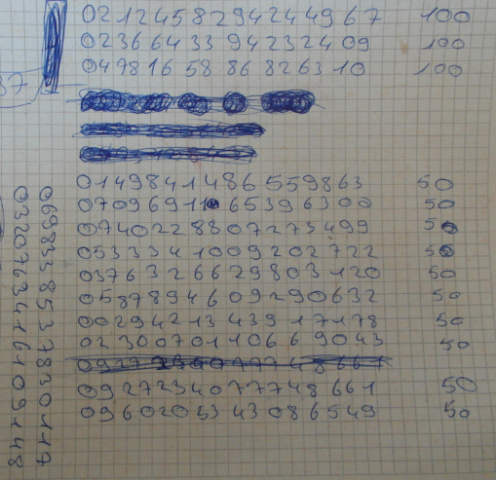 0212458294244967 100
0236643394232409 100
0498165886826310 100
37
0149841486559863 50
07096911065396300 50
0740228807273499 50
0533341009202722 50
0376326629803120 50
0587894609290632 50
0029421343917178 50
0230070110669043 50
0927234077748661 50
0960205343086549 50
0698338537830117
0320763416109148